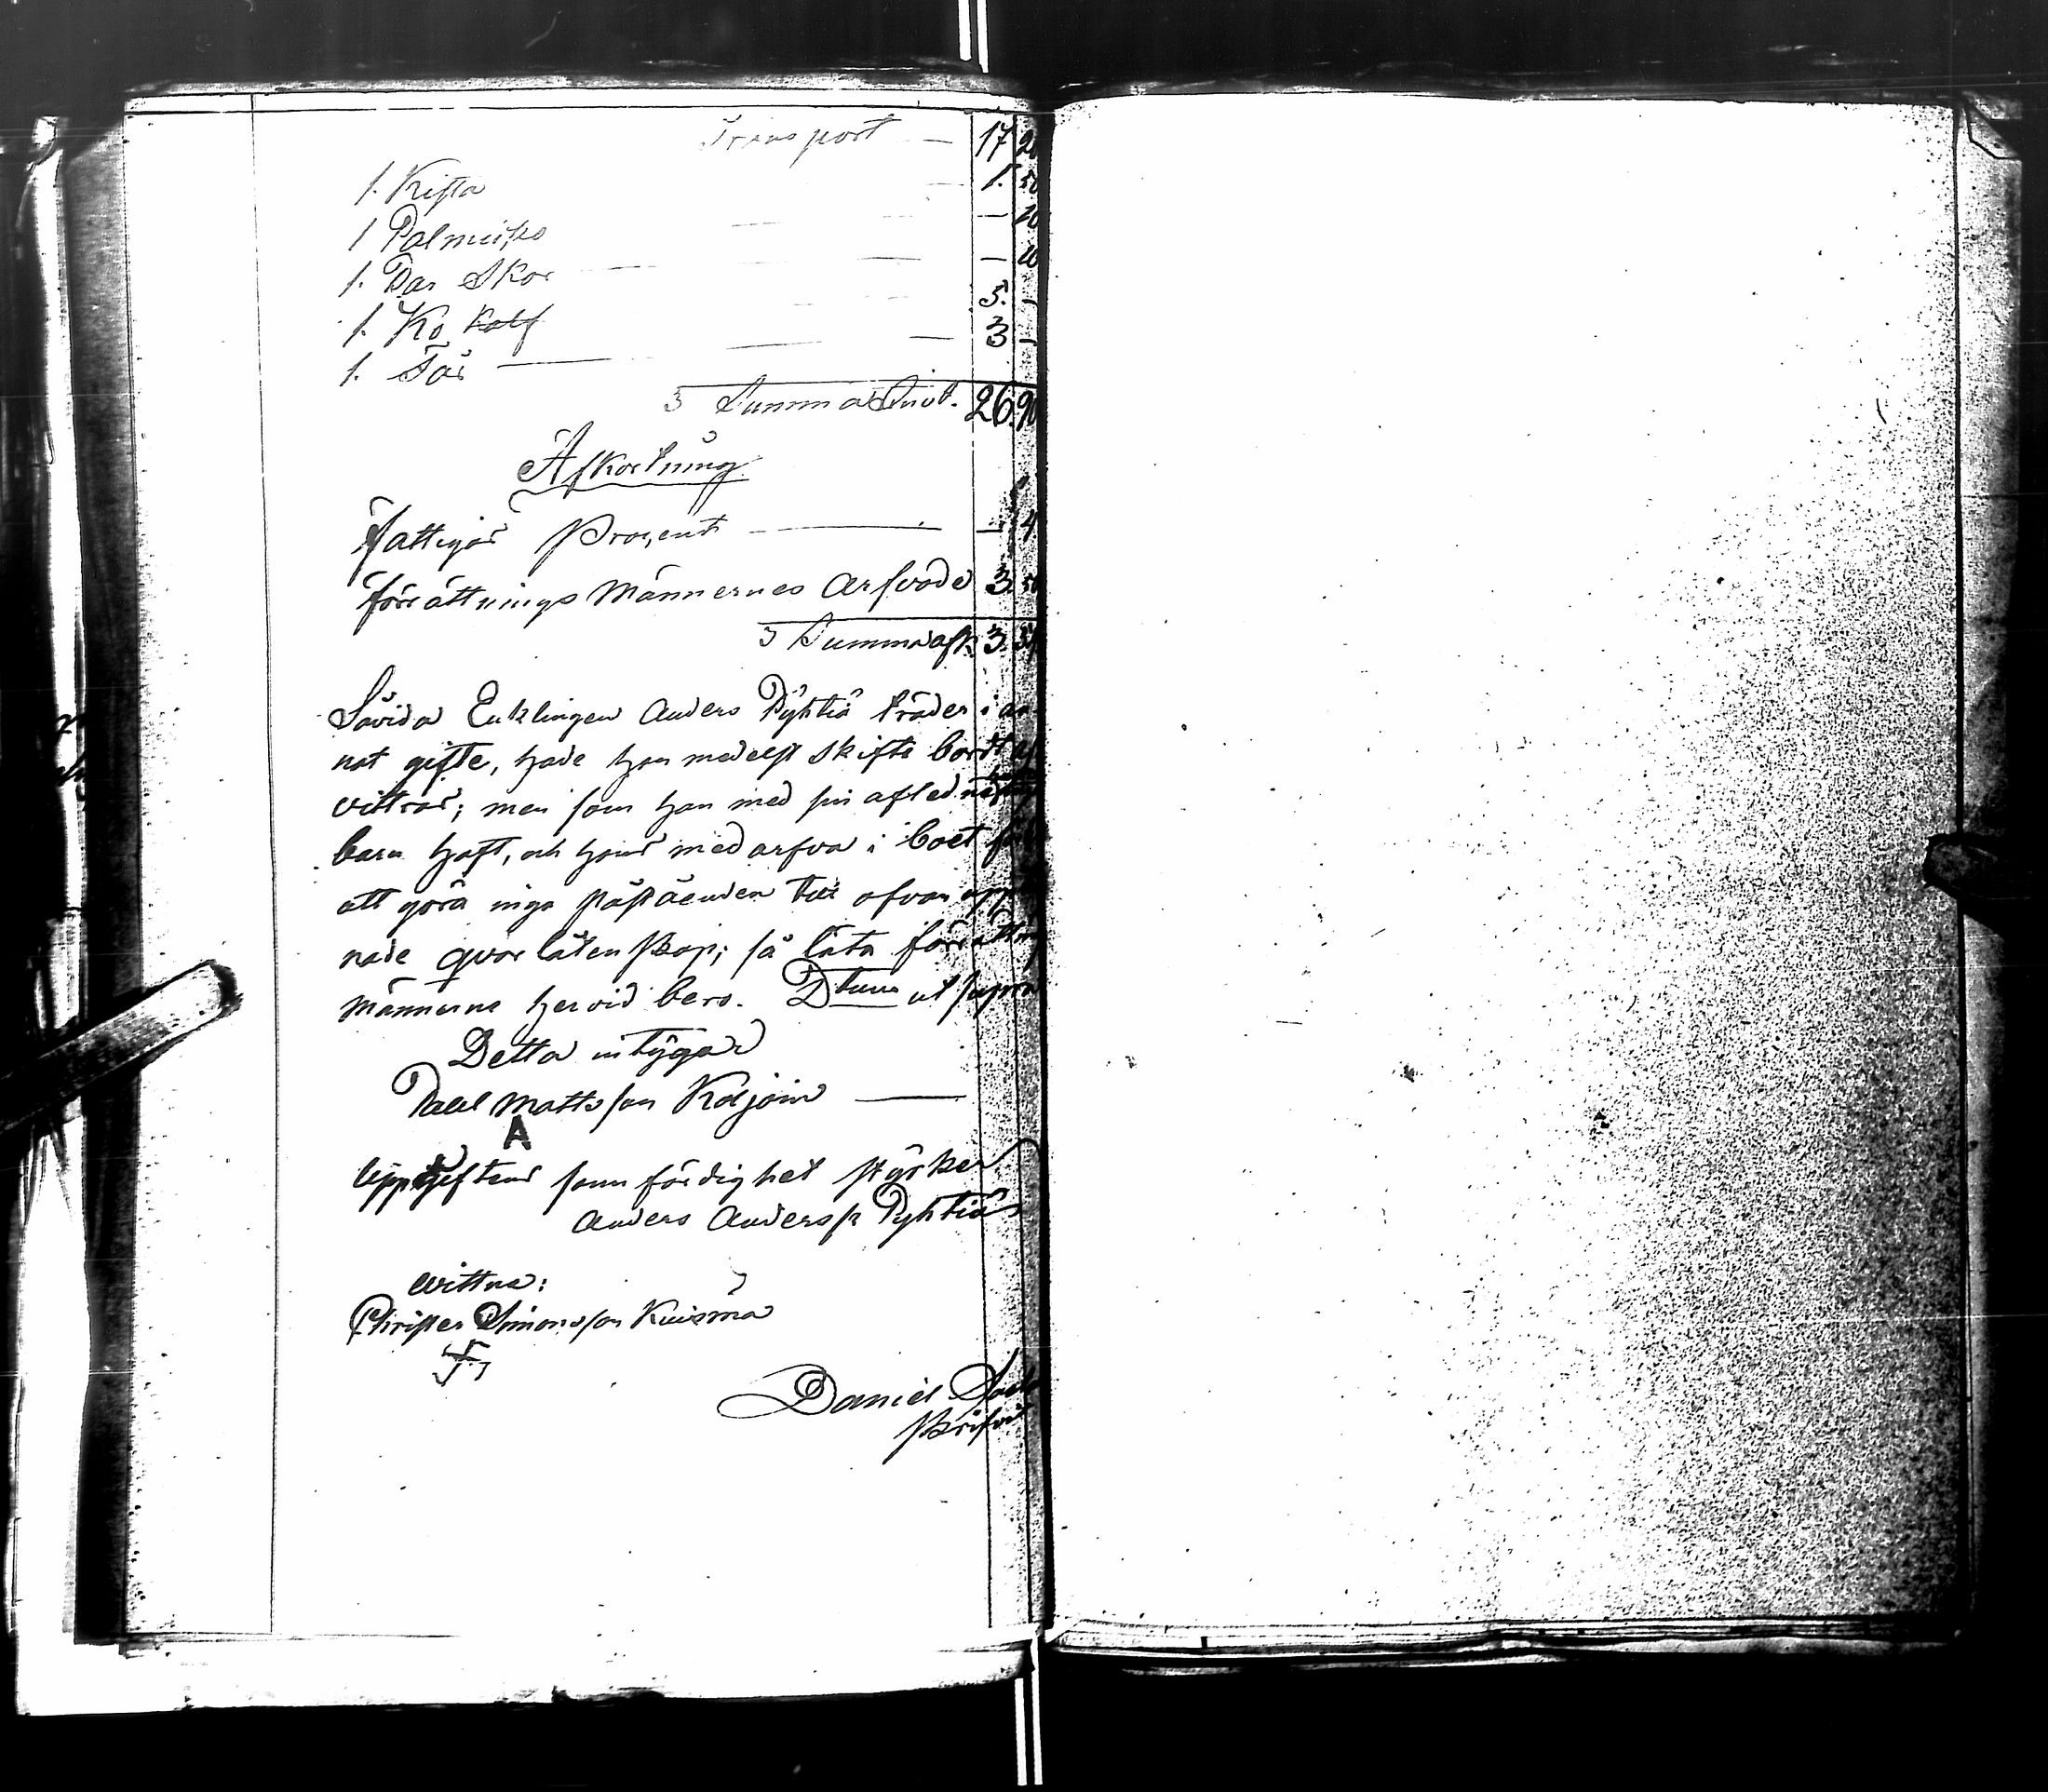 Transport — 17 20
1. Kista — 1. 50
1 Palmuisko — — 10
1. Par Skor — — — 10
1. Ko Kalf 5. —
1. Får — — 3 —
Summa Invt. 26. 90
Afkortning
Fattigas Procent — — 4
förrättnings Männernes arfvode 3. 50
Summa afk. 3. 54
Såvida Enklingen Anders Pyhtiä träder i an-
nat gifte, hade han medelst skifte bordt af
vittras; men som han med sin afled.
barn haft, och hans medarfva i boet
att göra inga påståenden till ofvan
nade qvarlåtenskap; så låta förrättnings
männerna hervid bero. Dtum ut supra
Detta intygar
Paul Mattsson Koljoin —
A
Uppgiftens sannfärdighet styrker
Anders Anderss. Pyhtiä
Wittna:
Christer Simonsson Kuisma
Daniel
skrifvit